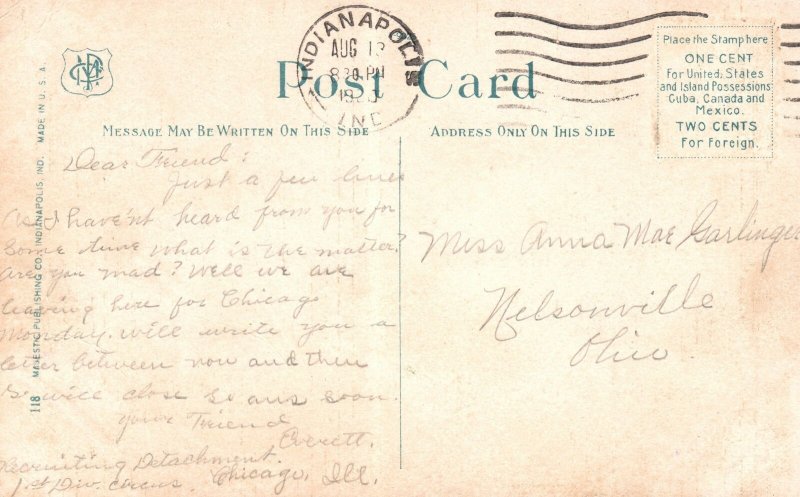 INDIANAPOLIS
AUG 13
830 PM
IND
Post Card
Place the Stamp here
ONE CENT
For United States
and Island Possessions
Cuba, Canada and
Mexico.
TWO CENTS
For Foreign.
MESSAGE MAY BE WRITTEN ON THIS SIDE
ADDRESS ONLY ON THIS SIDE
118 MAJESTIC PUBLISHING CO., INDIANAPOLIS, IND. MADE IN U.S.A.
Dear Friend:
Just a few lines
as I have'nt heard from you for
some time what is the matter?
Are you mad? Well we are
leaving here for Chicago
Monday. will write you a
letter between now and then
so will close so ans soon.
your Friend
Everett.
Recruiting Detachment.
1st Div. circus. Chicago, Ill.
Miss Anna Mae Garlinger
Nelsonville
Ohio